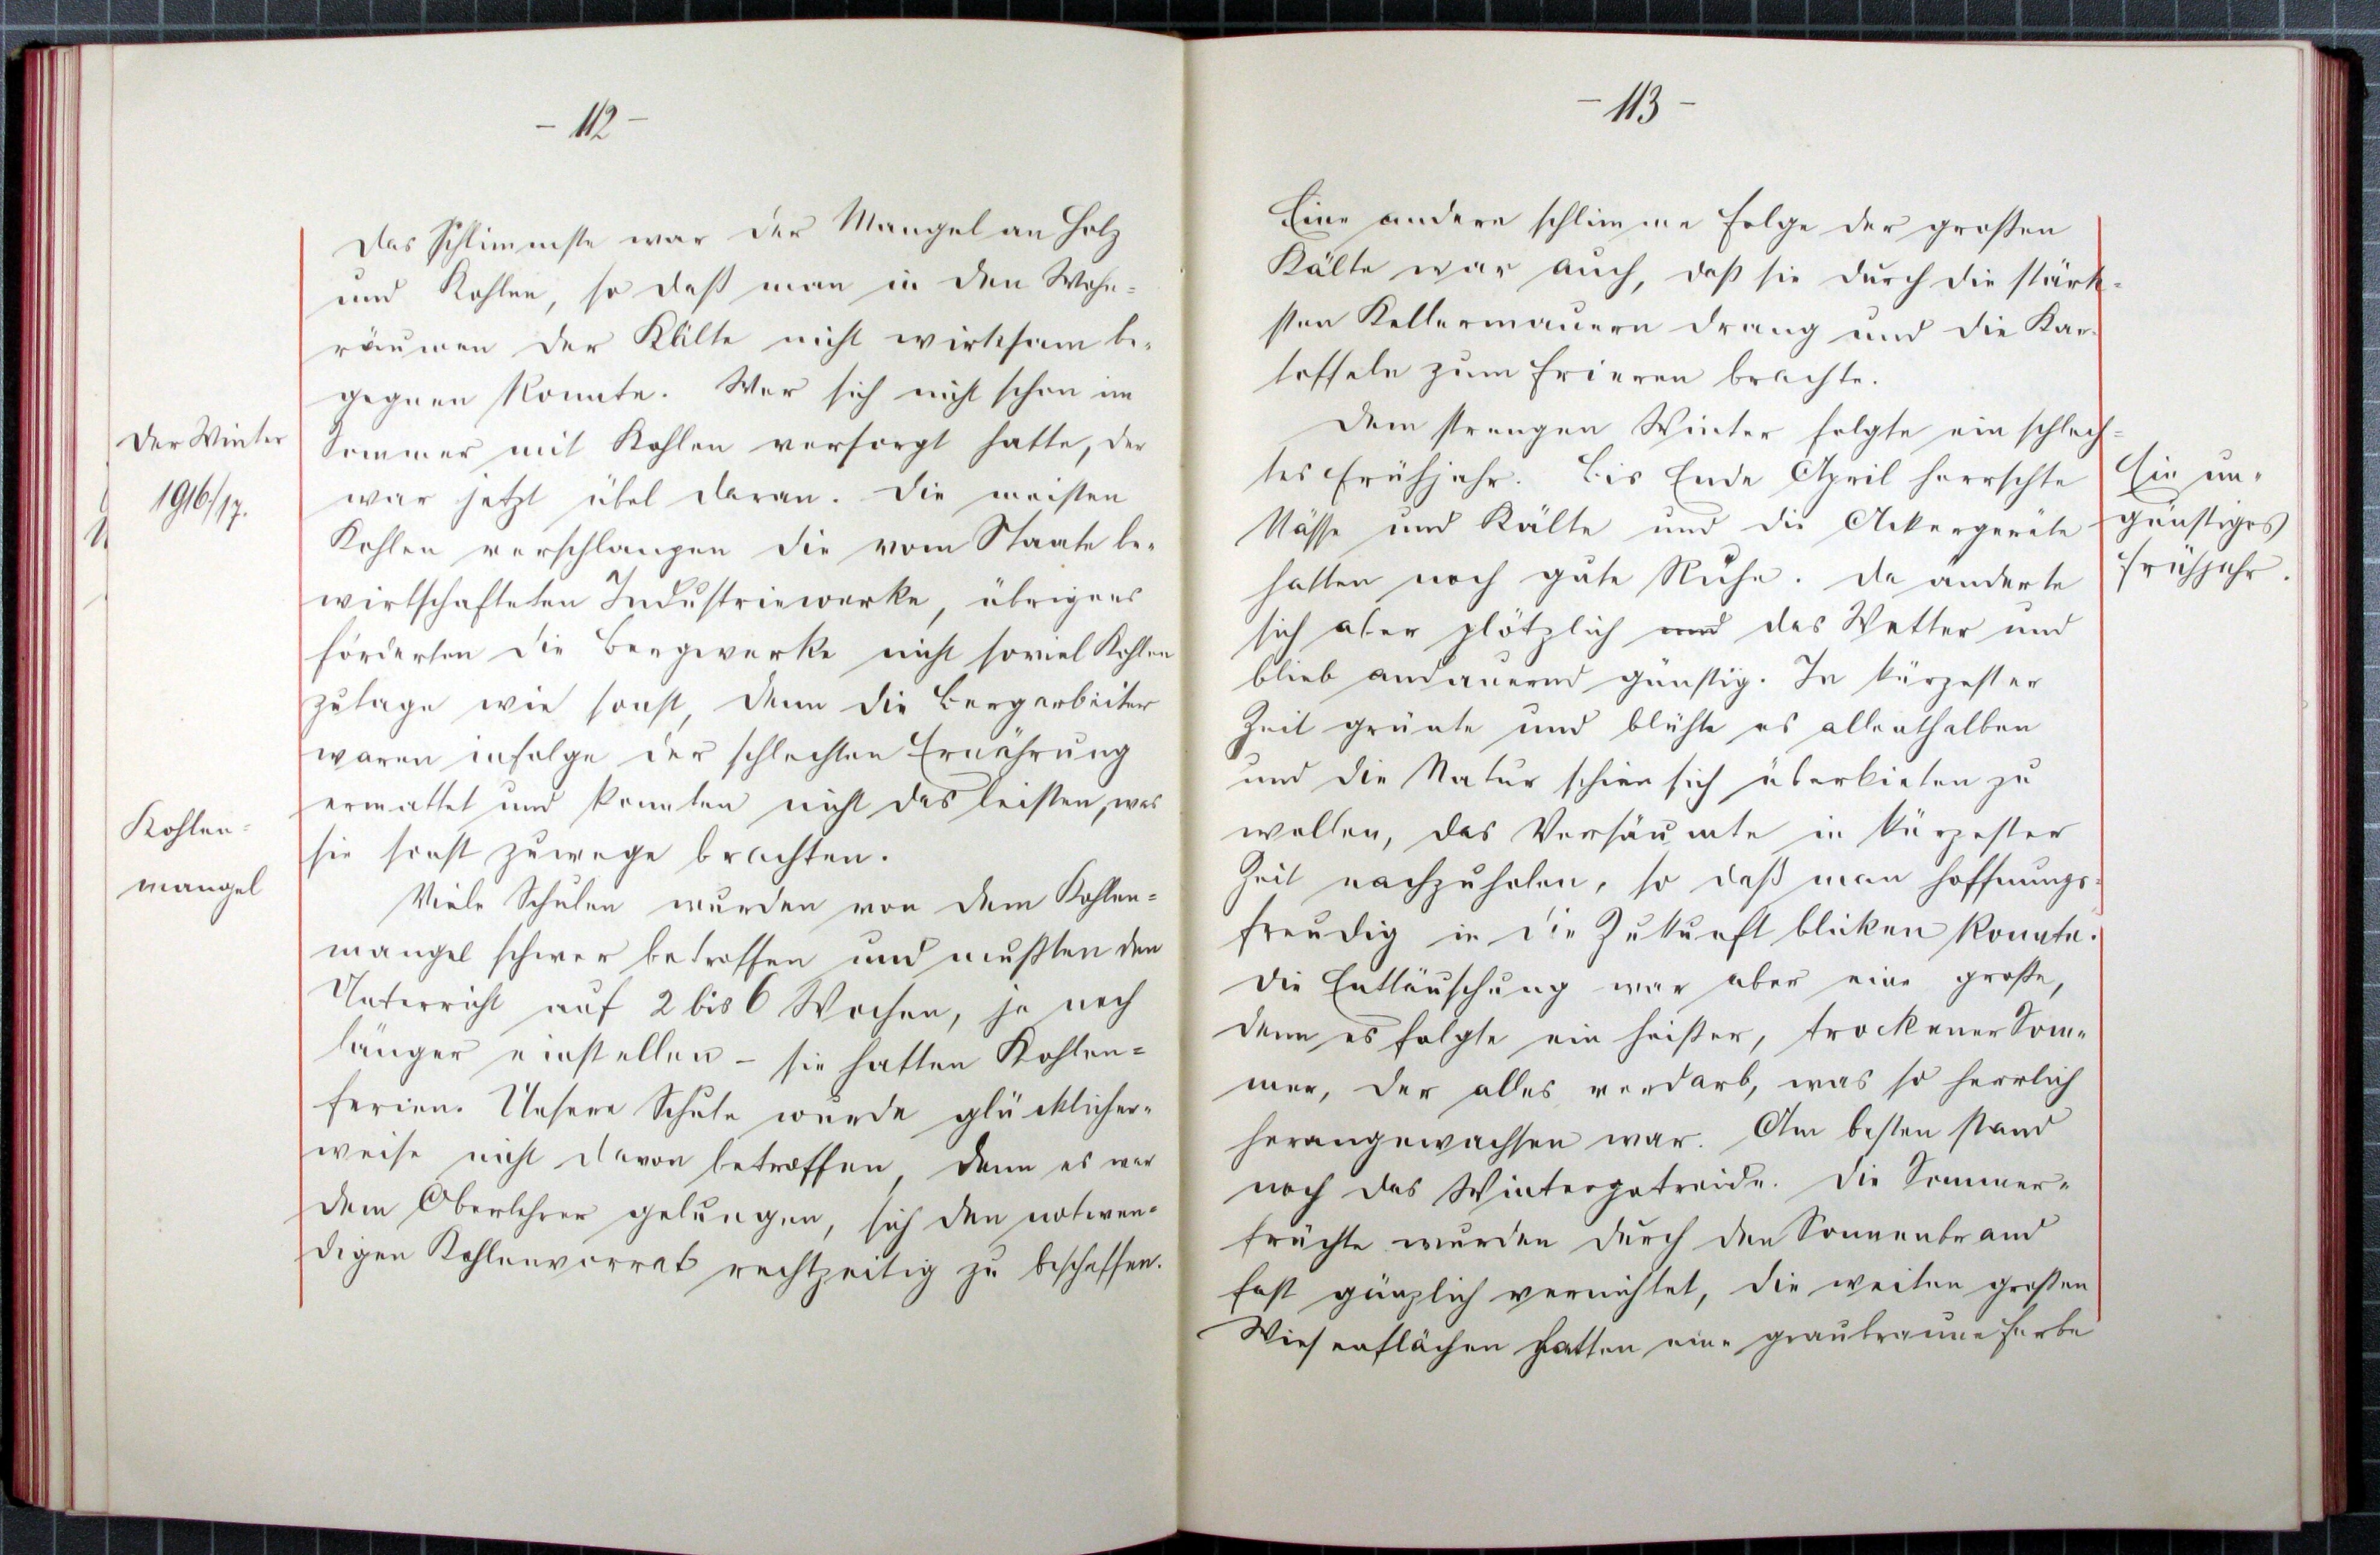 - 112 -
Das Schlimmste war der Mangel an Holz
und Kohlen, so daß man in den Wohn-
räumen der Kälte nicht wirksam be-
gegnen konnte. Wer sich nicht schon im
Sommer mit Kohlen versorgt hatte, der
war jetzt übel daran. Die meisten
Kohlen verschlangen die vom Staate be-
wirtschafteten Industriewerke, übrigens
förderten die Bergwerke nicht soviel Kohlen
zutage wie sonst, denn die Bergarbeiter
waren infolge der schlechten Ernährung
ermattet und konnten nicht das leisten, was
sie sonst zuwege brachten.
Viele Schulen wurden von dem Kohlen-
mangel schwer betroffen und mußten den
Unterricht auf 2 bis 6 Wochen, ja noch
länger einstellen - sie hatten Kohlen-
ferien. Unsere Schule wurde glücklicher-
weise nicht davon betroffen, denn es war
dem Oberlehrer gelungen, sich den notwen-
digen Kohlenvorrat rechtzeitig zu beschaffen.
Der Winter
1916/17.
Kohlen-
mangel
- 113 -
Eine andere schlimme Folge der großen
Kälte war auch, daß sie durch die stärk-
sten Kellermauern drang und die Kar-
toffeln zum Frieren brachte.
Dem strengen Winter folgte ein schlech-
tes Frühjahr. Bis Ende April herrschte
Nässe und Kälte und die Ackergeräte
hatten noch gute Ruhe. Da änderte
sich aber plötzlich und das Wetter und
blieb andauernd günstig. In kürzester
Zeit grünte und blühte es allenthalben
und die Natur schien sich überbieten zu
wollen, das Versäumte in kürzester
Zeit nachzuholen, so daß man hoffnungs-
freudig in die Zukunft blicken konnte.
Die Enttäuschung war aber eine große,
denn es folgte ein heißer, trockener Som-
mer, der alles verdarb, was so herrlich
herangewachsen war. Am besten stand
noch das Wintergetreide. Die Sommer-
früchte wurden durch den Sonnenbrand
fast gänzlich vernichtet, die weiten großen
Wiesenflächen hatten eine graubraune Farbe
Ein un-
günstiges
Frühjahr.